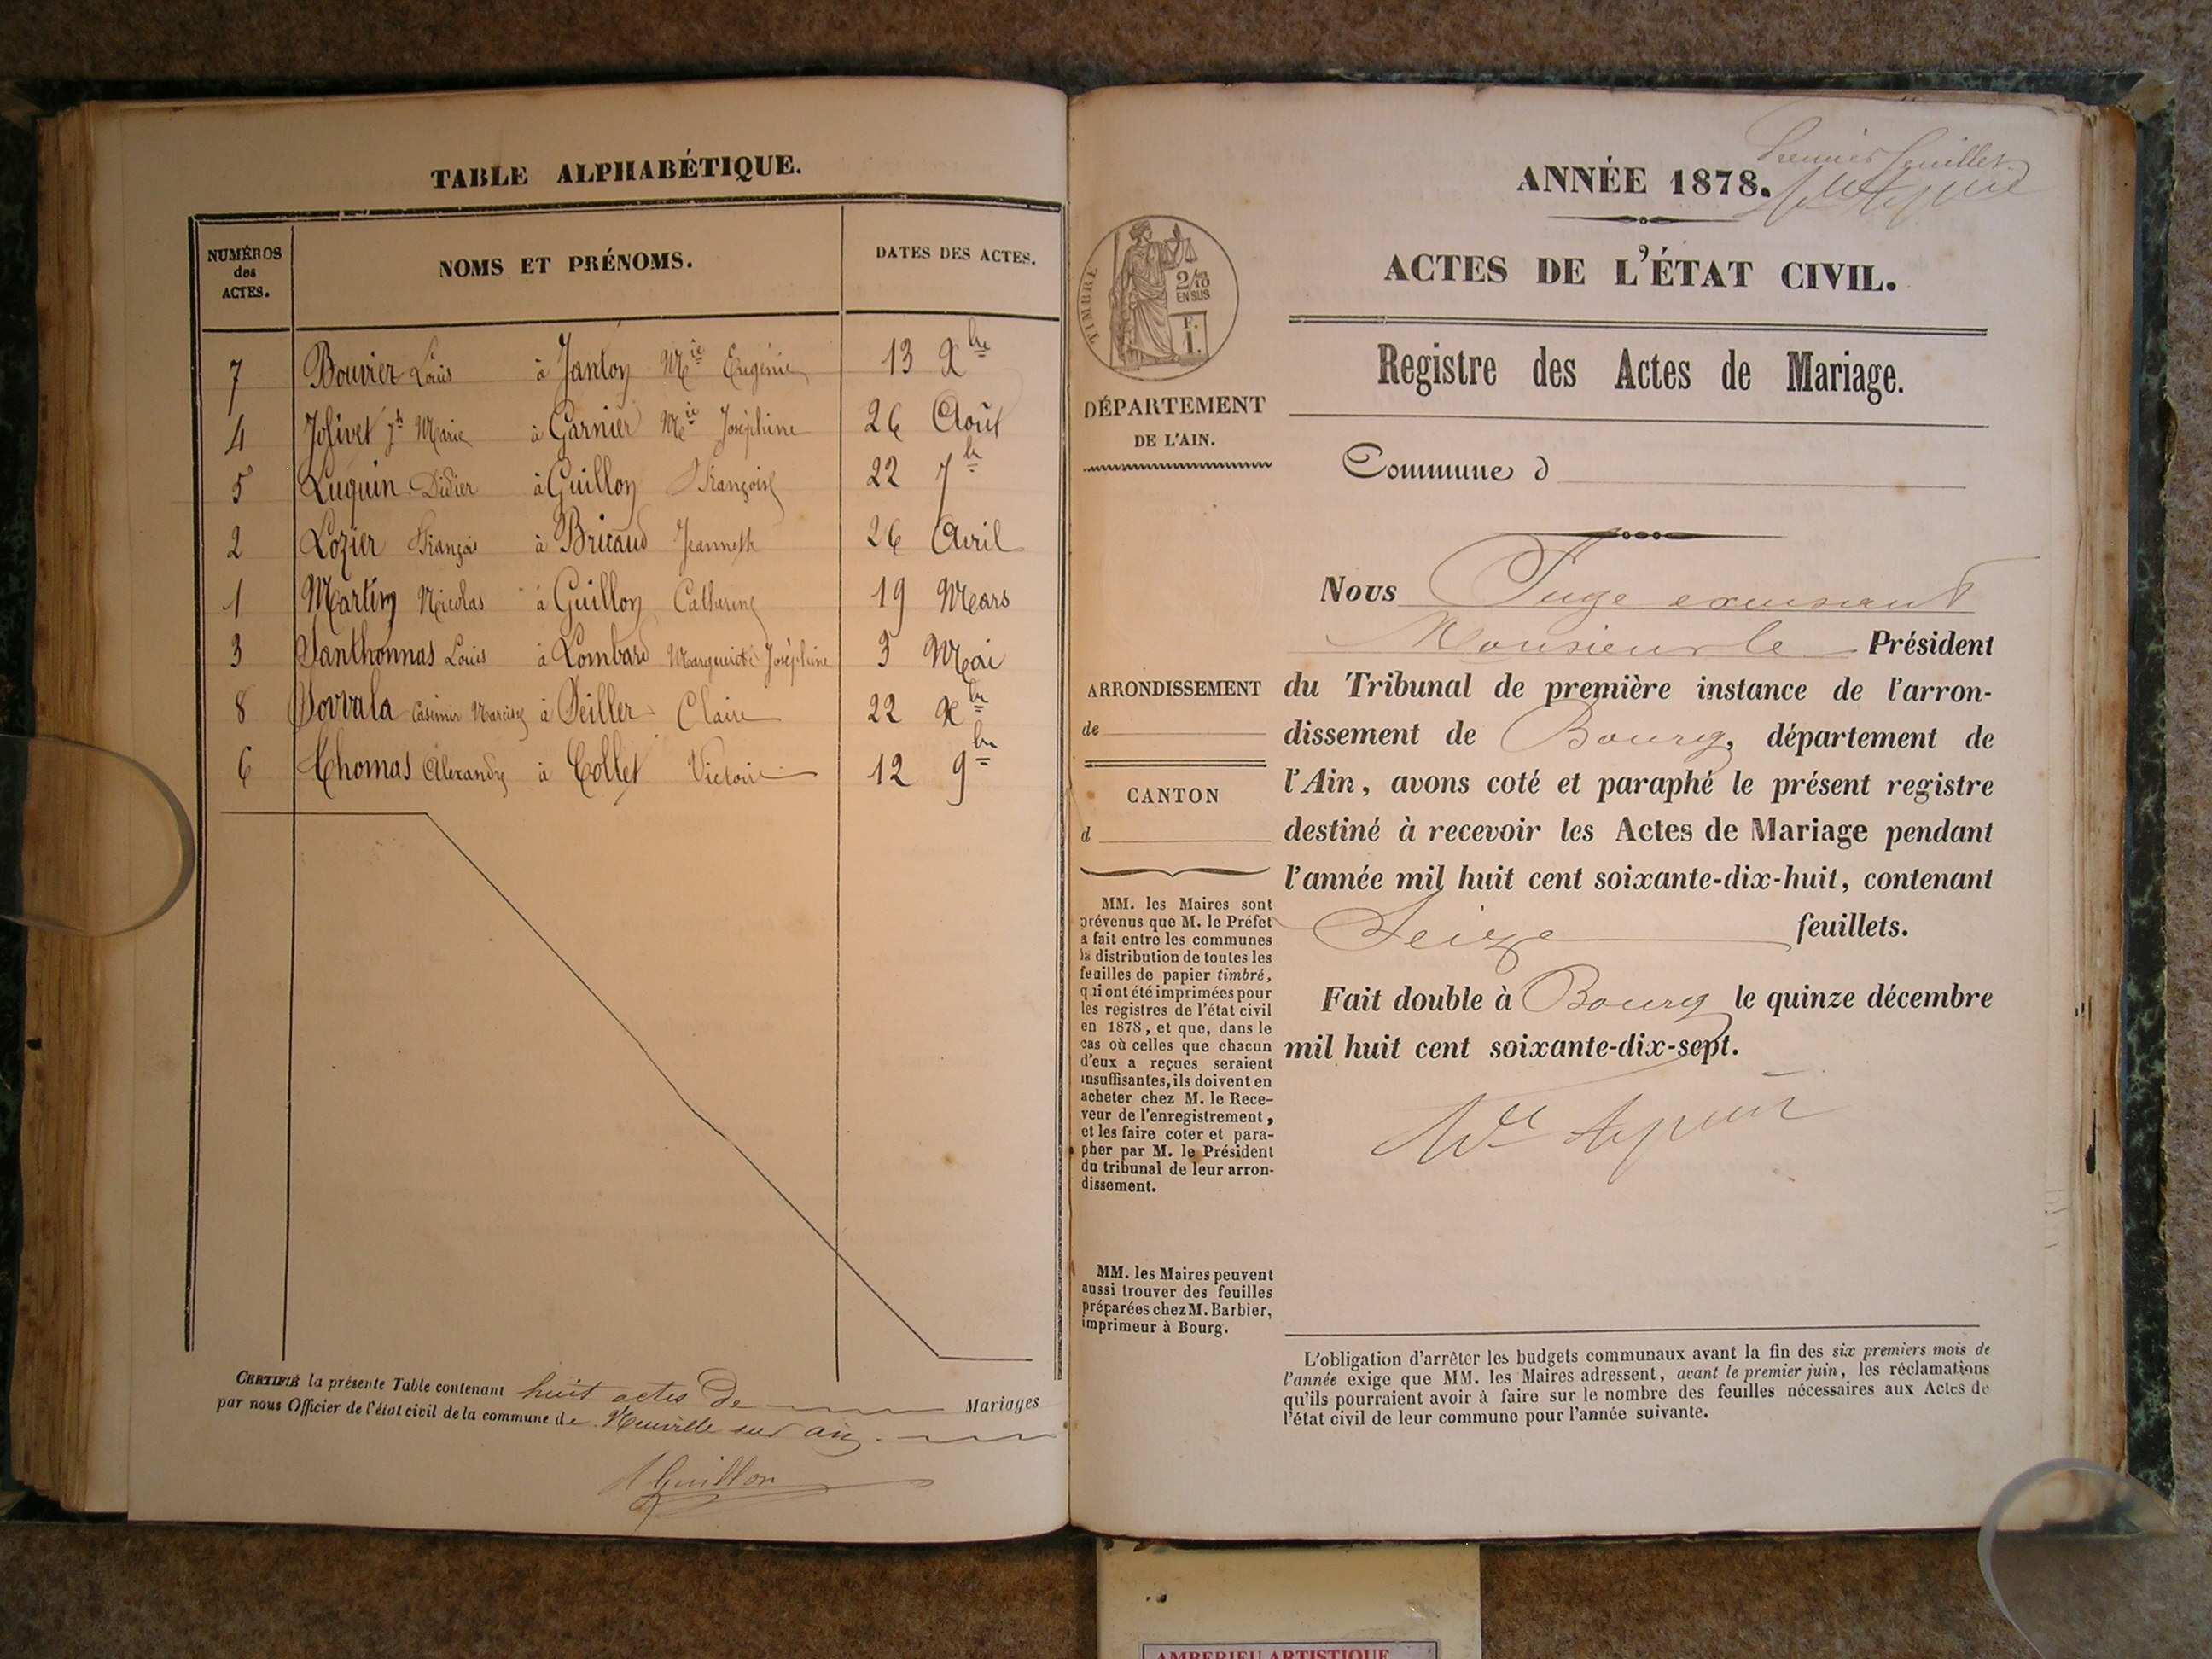 TABLE ALPHABÉTIQUE.
NUMÉROS des ACTES. NOMS ET PRÉNOMS. DATES DES ACTES.
7 Bouvier Louis à Janton Mie Eugénie 13 Xbre
4 Jolivet Jh Marie à Garnier Mie Joséphine 26 Août
5 Luquin Didier à Guillon Françoise 22 7bre
2 Lozier François à Bricaud Jeannette 26 Avril
1 Martin Nicolas à Guillon Catherine 19 Mars
3 Santhonnas Louis à Lombard Marguerite Joséphine 3 Mai
8 Sovvala Casimir Narcisse à Seiller Claire 22 Xbre
6 Thomas Alexandre à Collet Victoire 12 9bre
CERTIFIÉ la présente Table contenant huit actes de Mariages
par nous Officier de l'état civil de la commune de Neuville sur ain.
Guillon
Premier feuillet
ANNÉE 1878.
ACTES DE L'ÉTAT CIVIL.
Registre des Actes de Mariage.
TIMBRE
2/10
EN SUS
F.
1.
DÉPARTEMENT
DE L'AIN.
Commune d
Nous Juge
Monsieur le Président
du Tribunal de première instance de l'arron-
dissement de Bourg, département de
l'Ain, avons coté et paraphé le présent registre
destiné à recevoir les Actes de Mariage pendant
l'année mil huit cent soixante-dix-huit, contenant
Seize feuillets.
Fait double à Bourg le quinze décembre
mil huit cent soixante-dix-sept.
ARRONDISSEMENT
de
CANTON
d
MM. les Maires sont
prévenus que M. le Préfet
a fait entre les communes
la distribution de toutes les
feuilles de papier timbré,
qui ont été imprimées pour
les registres de l'état civil
en 1878, et que, dans le
cas où celles que chacun
d'eux a reçues seraient
insuffisantes, ils doivent en
acheter chez M. le Rece-
veur de l'enregistrement,
et les faire coter et para-
pher par M. le Président
du tribunal de leur arron-
dissement.
MM. les Maires peuvent
aussi trouver des feuilles
préparées chez M. Barbier,
imprimeur à Bourg.
L'obligation d'arrêter les budgets communaux avant la fin des six premiers mois de
l'année exige que MM. les Maires adressent, avant le premier juin, les réclamations
qu'ils pourraient avoir à faire sur le nombre des feuilles nécessaires aux Actes de
l'état civil de leur commune pour l'année suivante.
AMBERIEU ARTISTIQUE